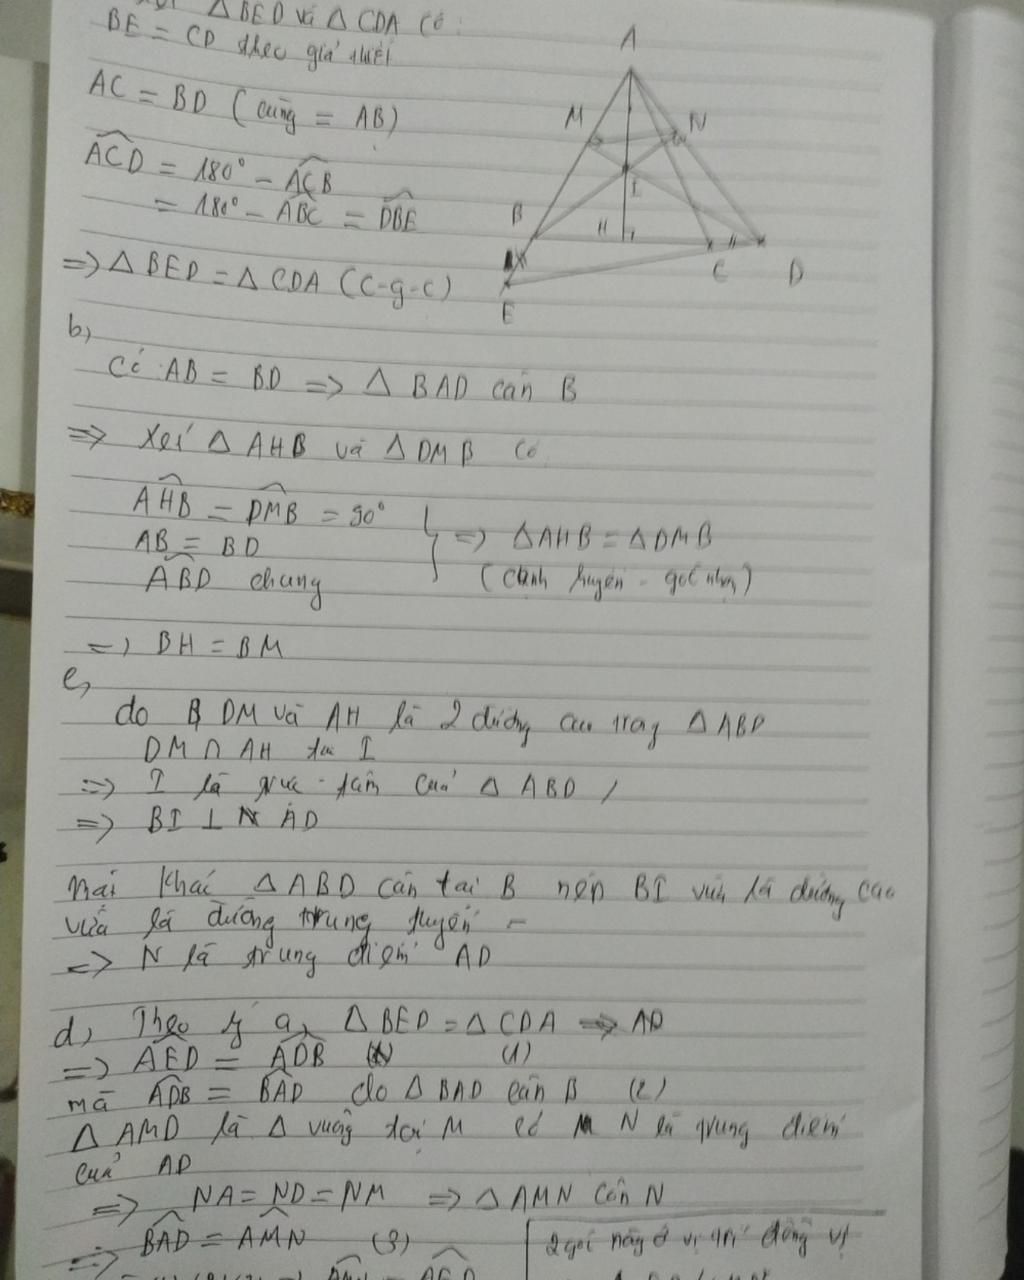 △BED và △CDA có:
BE = CD theo giả thiết
AC = BD (cùng = AB)
ACD = 180° - ACB
= 180° - ABC = DBE
=> △BED = △CDA (c-g-c)
A
M
N
I
B
H
C
D
E
b,
Có AB = BD => △ BAD cân B
=> Xét △ AHB và △ DMB có
AHB = DMB = 90°
AB = BD
ABD chung
=> △AHB = △DMB
(cạnh huyền - góc nhọn)
=> BH = BM
c,
do DM và AH là 2 đường cao trong △ ABD
DM ∩ AH tại I
=> I là trực tâm của △ ABD
=> BI ⊥ AD
Mặt khác △ ABD cân tại B nên BI vừa là đường cao
vừa là đường trung tuyến
=> N là trung điểm AD
d, Theo ý a, △ BED = △ CDA => AD
=> AED = ADB (1)
mà ADB = BAD do △ BAD cân B (2)
△ AMD là △ vuông tại M có N là trung điểm
của AD
=> NA = ND = NM => △ AMN cân N
=> BAD = AMN (3)
2 góc này ở vị trí đồng vị